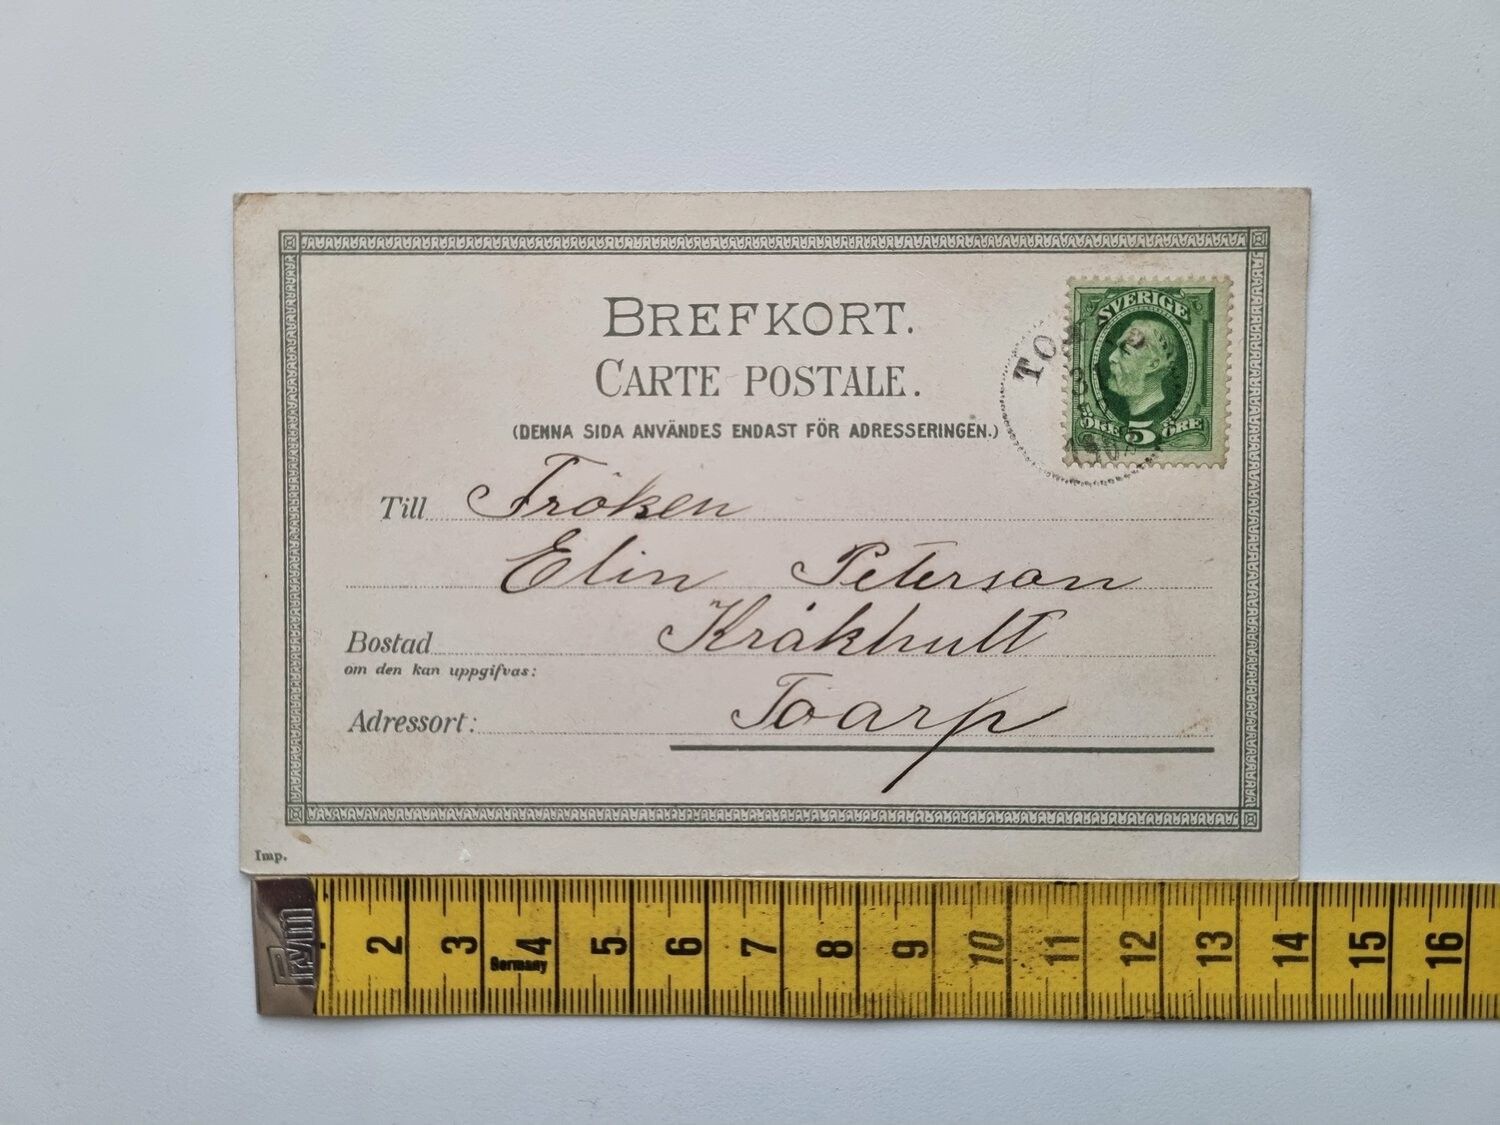 BREFKORT.
CARTE POSTALE.
(DENNA SIDA ANVÄNDES ENDAST FÖR ADRESSERINGEN.)
SVERIGE
ÖRE 5 ÖRE
Till Fröken
Elin Peterson
Bostad Kråkhult
om den kan uppgifvas:
Adressort: Toarp
Imp.
Prym
2 3 4 5 6 7 8 9 10 11 12 13 14 15 16
Germany